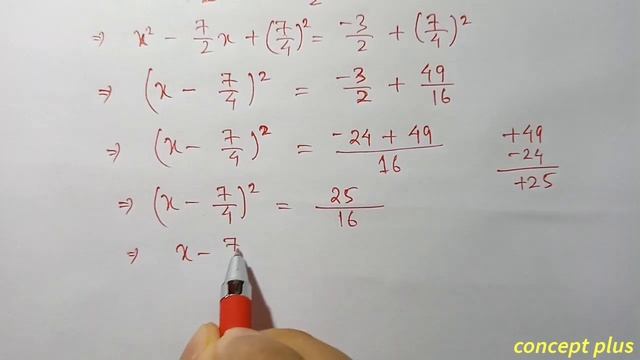 ⇒ x² - 7/2 x + (7/4)² = -3/2 + (7/4)²
⇒ (x - 7/4)² = -3/2 + 49/16
⇒ (x - 7/4)² = -24 + 49/16
+49
-24
+25
⇒ (x - 7/4)² = 25/16
⇒ x - 7
concept plus